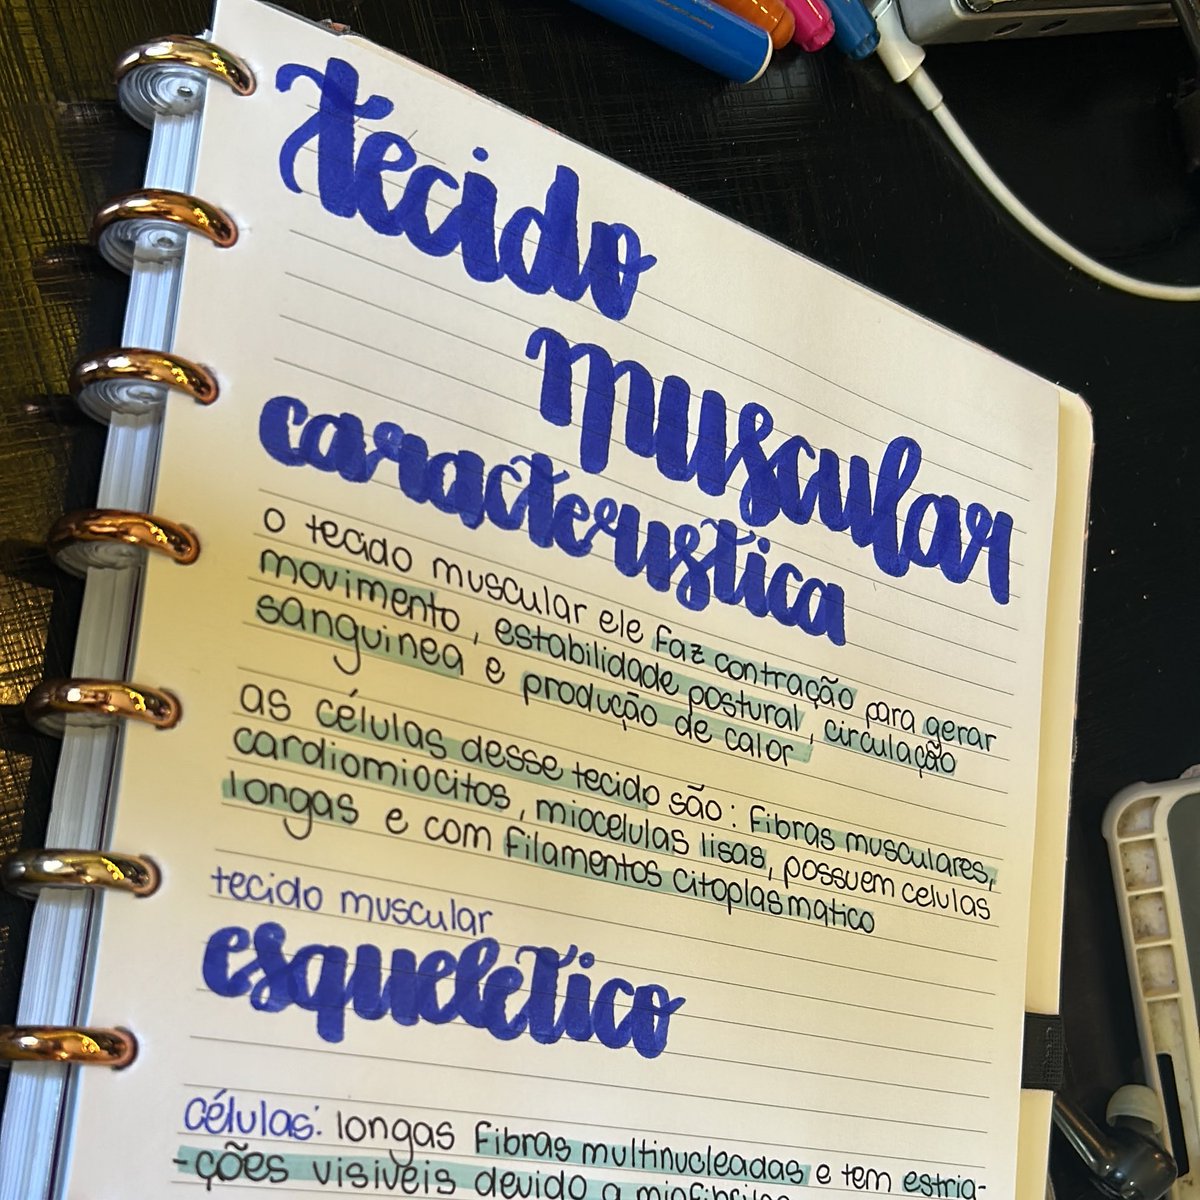 tecido
muscular
caracterustica
o tecido muscular ele faz contração para gerar
movimento, estabilidade postural, circulação
sanguinea e produção de calor
as células desse tecido são: fibras musculares,
cardiomiocitos, miocelulas lisas, possuem celulas
longas e com filamentos citoplasmatico
tecido muscular
esqueletico
células: longas fibras multinucleadas e tem estria-
-ções visiveis devido a miofibrilas